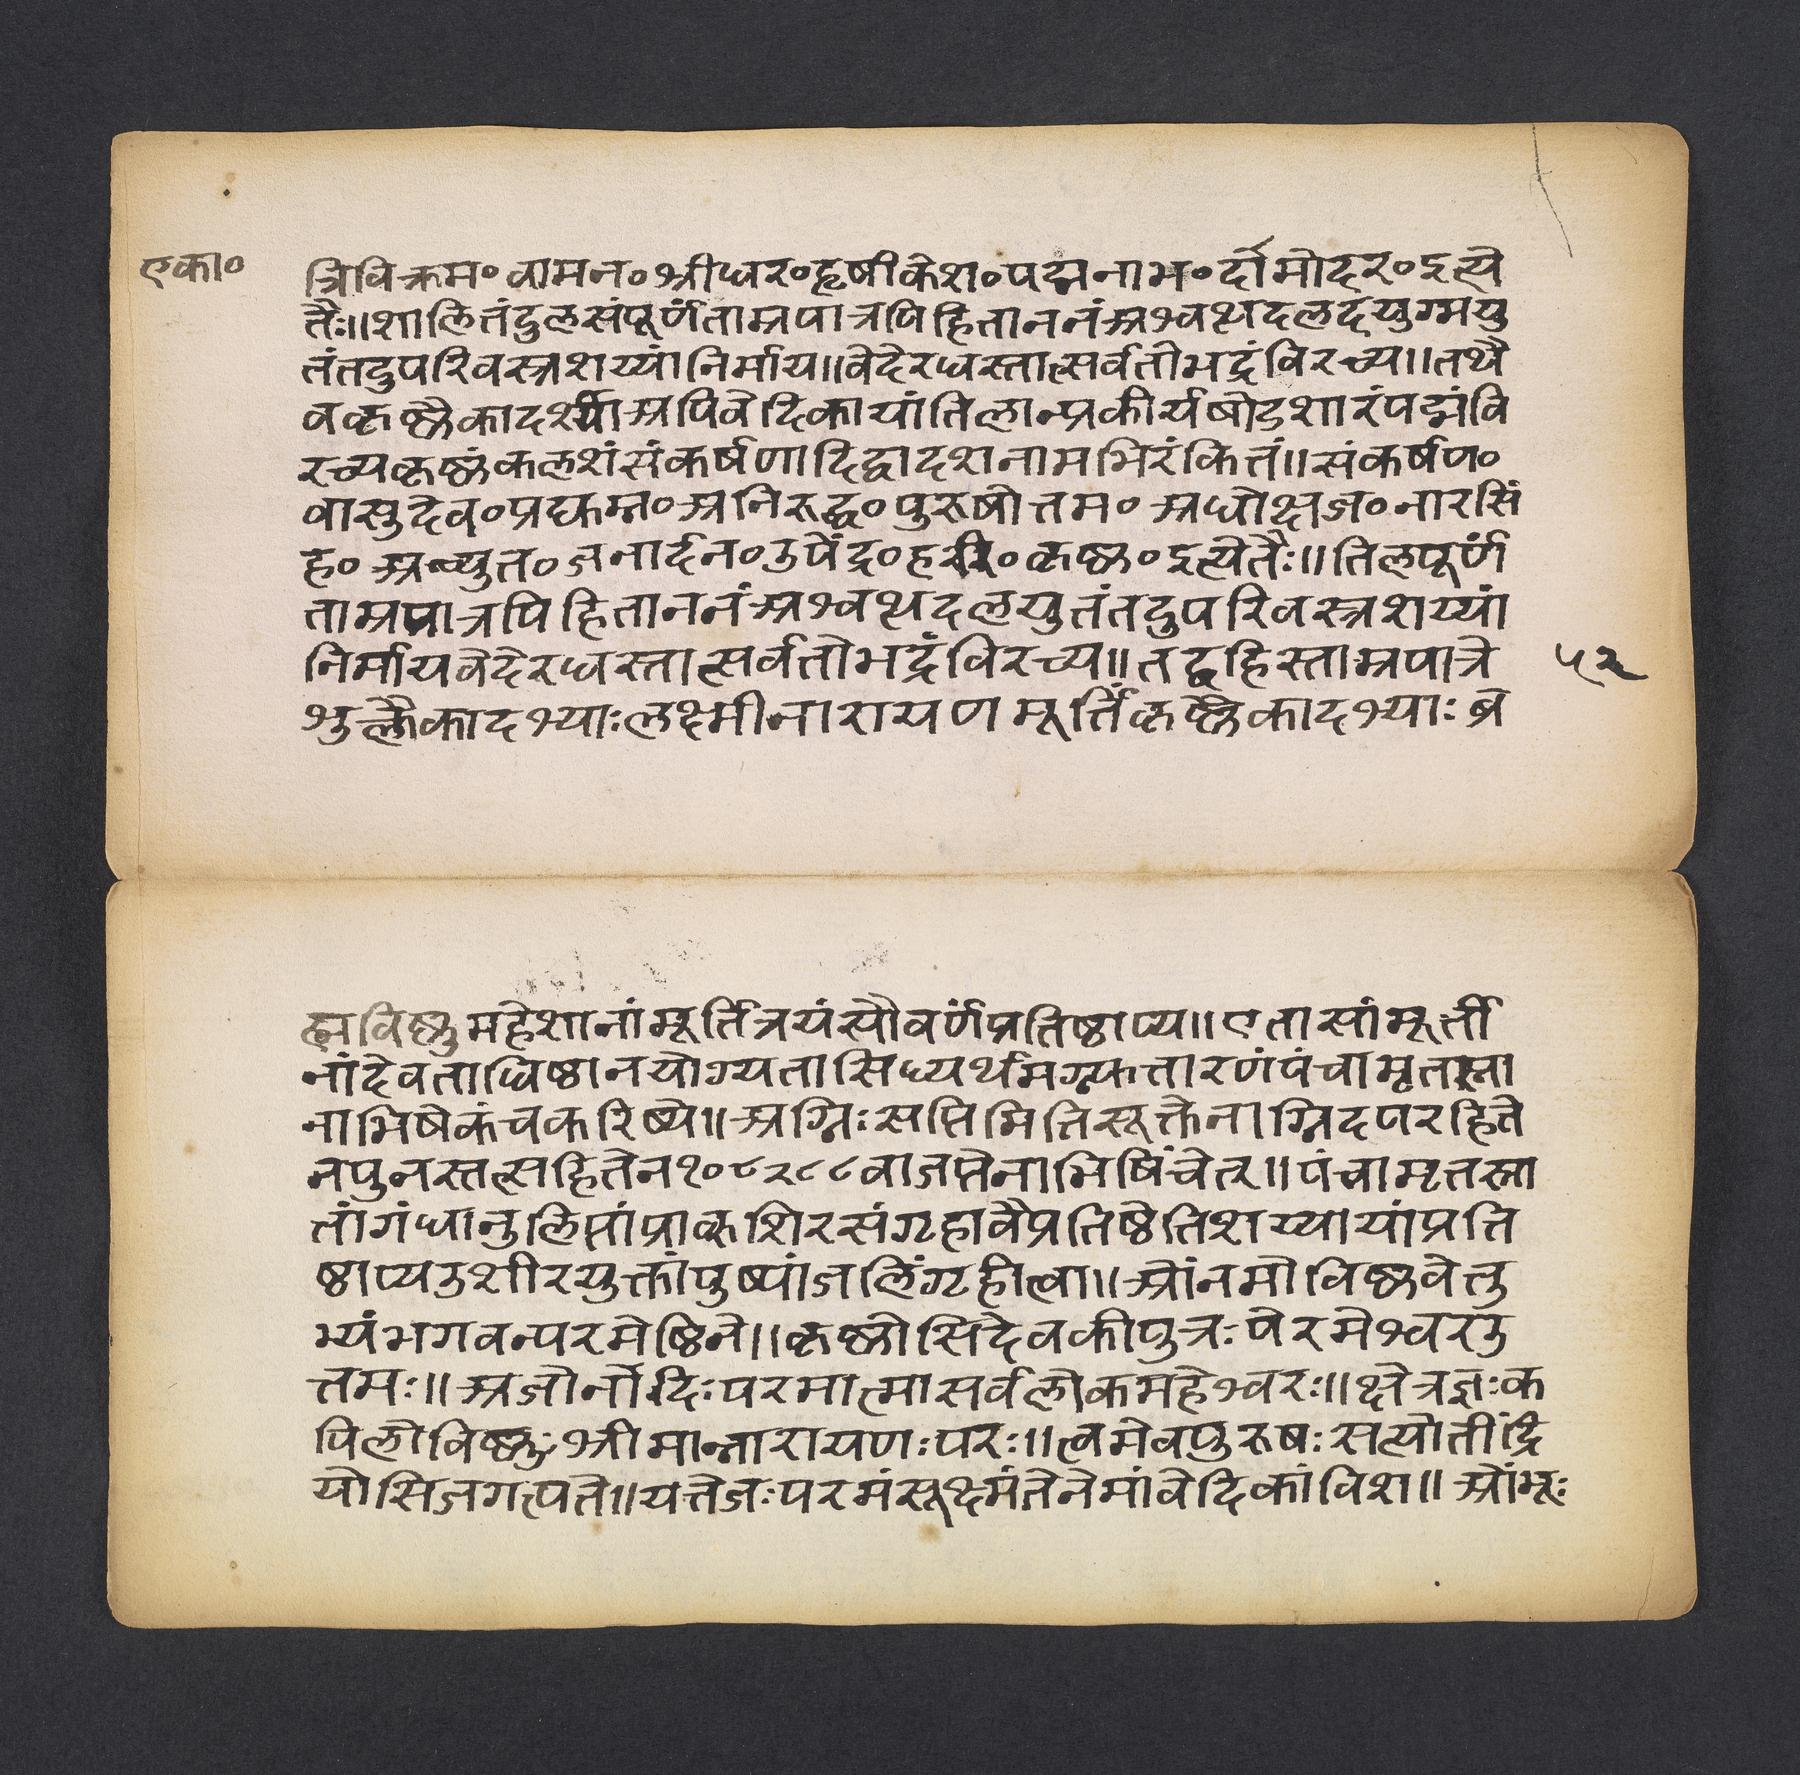 एका०
त्रिविक्रम० वामन० श्रीधर० हृषीकेश० पद्मनाभ० दामोदर० इत्ये
तैः॥ शालितंदुलसंपूर्णताम्रपात्रपिहिताननंअश्वत्थदलदयुग्मयु
तंतदुपरिवस्त्रशय्यांनिर्माय॥ वेदेरधस्तात्सर्वतोभद्रंविरच्य॥ तथै
वकृष्णैकादश्यांअपिवेदिकायांतिलान्प्रकीर्यषोडशारंपद्मंवि
रच्यकृष्णंकलशंसंकर्षणादिद्वादशनामभिरंकितं॥ संकर्षण०
वासुदेव० प्रद्युम्न० अनिरूद्ध० पुरूषोत्तम० अधोक्षज० नारसिं
ह० अच्युत० जनार्दन० उपेंद्र० हरि० कृष्ण० इत्येतैः॥ तिलपूर्ण
ताम्रपात्रपिहिताननंअश्वत्थदलयुतंतदुपरिवस्त्रशय्यां
निर्मायवेदेरधस्तात्सर्वतोभद्रंविरच्य॥ तद्बहिस्ताम्रपात्रे
५२
शुक्लैकादश्याःलक्ष्मीनारायणमूर्तिंकृष्णैकादश्याःब्र
ह्मविष्णुमहेशानांमूर्तित्रयंसौवर्णंप्रतिष्ठाप्य॥ एतासांमूर्ती
नांदेवताधिष्ठानयोग्यतासिध्यर्थमग्न्युत्तारणंपंचामृतस्ना
नाभिषेकंचकरिष्ये॥ अग्निःसप्तिमितिसूक्तेनाग्निदपरहिते
नपुनस्तत्सहितेन१०८२८८वाजप्तेनाभिषिंचेत्॥ पंचामृतस्ना
तांगंधानुलिप्तांप्राक्शिरसंगृहावैप्रतिष्ठेतिशय्यायांप्रति
ष्ठाप्यउशीरयुक्तांपुष्पांजलिंगृहीत्वा॥ ओंनमोविष्णवेतु
भ्यंभगवन्परमेष्ठिने॥ कृष्णोसिदेवकीपुत्रःपरमेश्वरउ
त्तमः॥ अजोनादिःपरमात्मासर्वलोकमहेश्वरः॥ क्षेत्रज्ञःक
पिलोविष्णुःश्रीमान्नारायणःपरः॥ त्वमेवपुरूषःसत्योतींद्रि
योसिजगत्पते॥ यत्तेजःपरमंसूक्ष्मंतेनेमांवेदिकांविश॥ ओंभूः